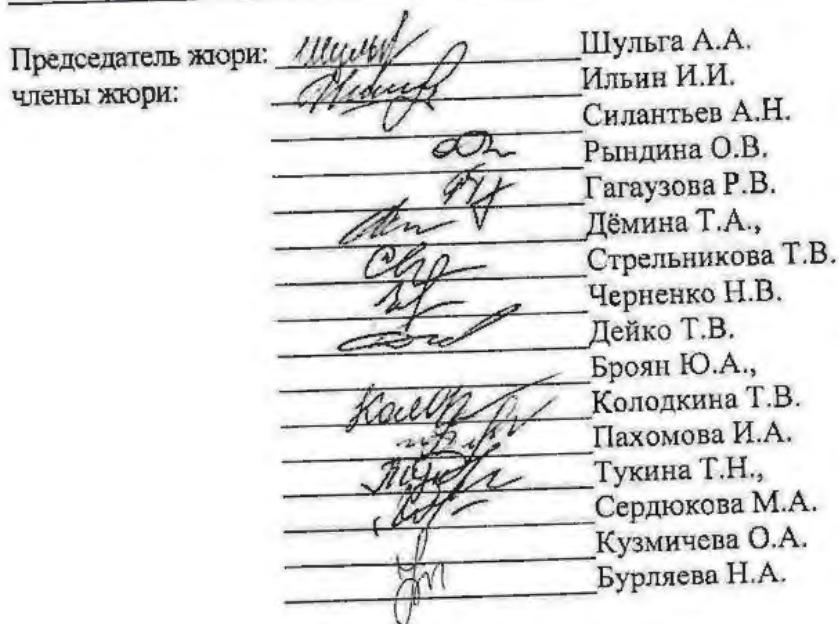 Председатель жюри: Шульга А.А.
члены жюри: Ильин И.И.
Силантьев А.Н.
Рындина О.В.
Гагаузова Р.В.
Дёмина Т.А.,
Стрельникова Т.В.
Черненко Н.В.
Дейко Т.В.
Броян Ю.А.,
Колодкина Т.В.
Пахомова И.А.
Тукина Т.Н.,
Сердюкова М.А.
Кузмичева О.А.
Бурляева Н.А.